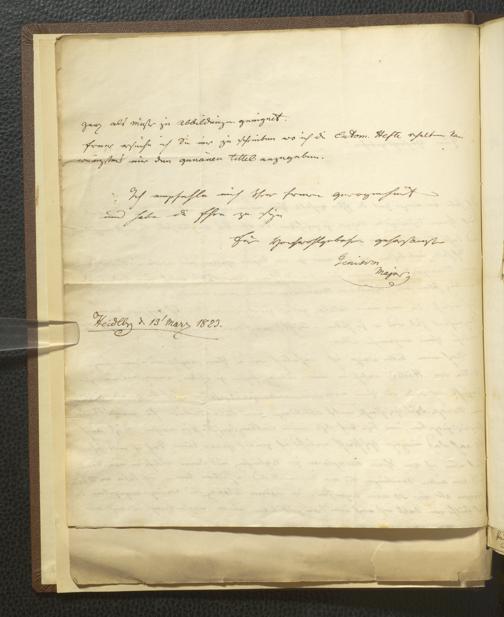 ganz als Muster zu Abbildungen geeignet.
ferner ersuche ich Sie mir zu schreiben wo ich die Entom. Hefte erhalten kann
wenigstens mir den genauen Tittel anzugeben.
Ich empfehle mich Ihrer fernern gewogenheit
und habe die Ehre zu seyn
Euer Hochwohlgebohren gehorsamster
Major
Heidelbg d. 13' März 1823.